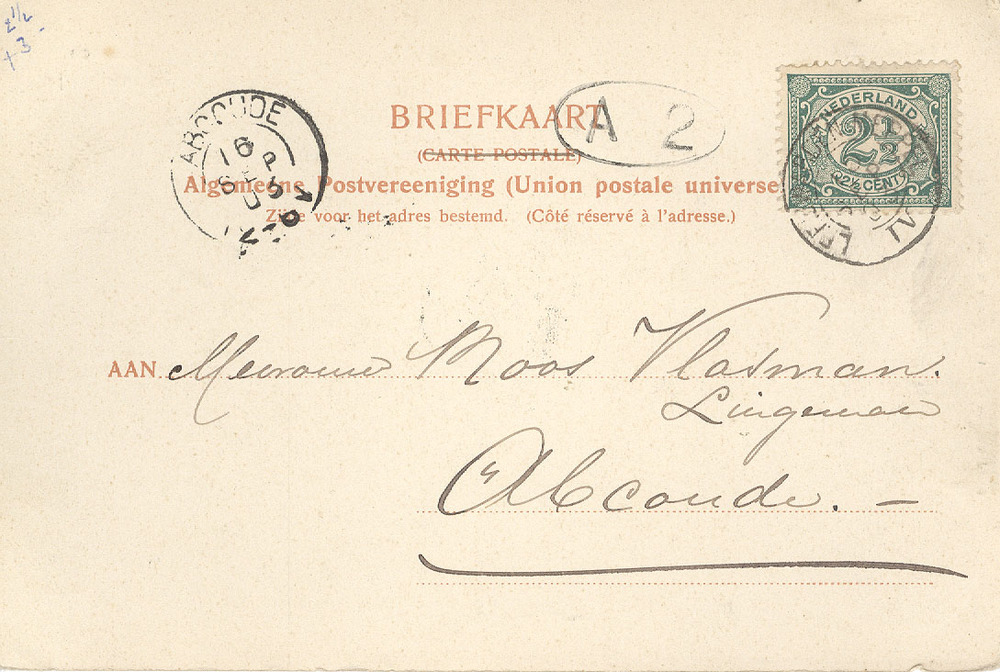 2½
+3-
BRIEFKAART
A 2
(CARTE POSTALE)
Algemeene Postvereeniging (Union postale universe
Zijde voor het adres bestemd. (Côté réservé à l'adresse.)
ABCOUDE
16
SEP
05
NEDERLAND
2½
2½ CENT
AAN Mevrouw Moos Vlasman.
Lingeman
Abcoude. –